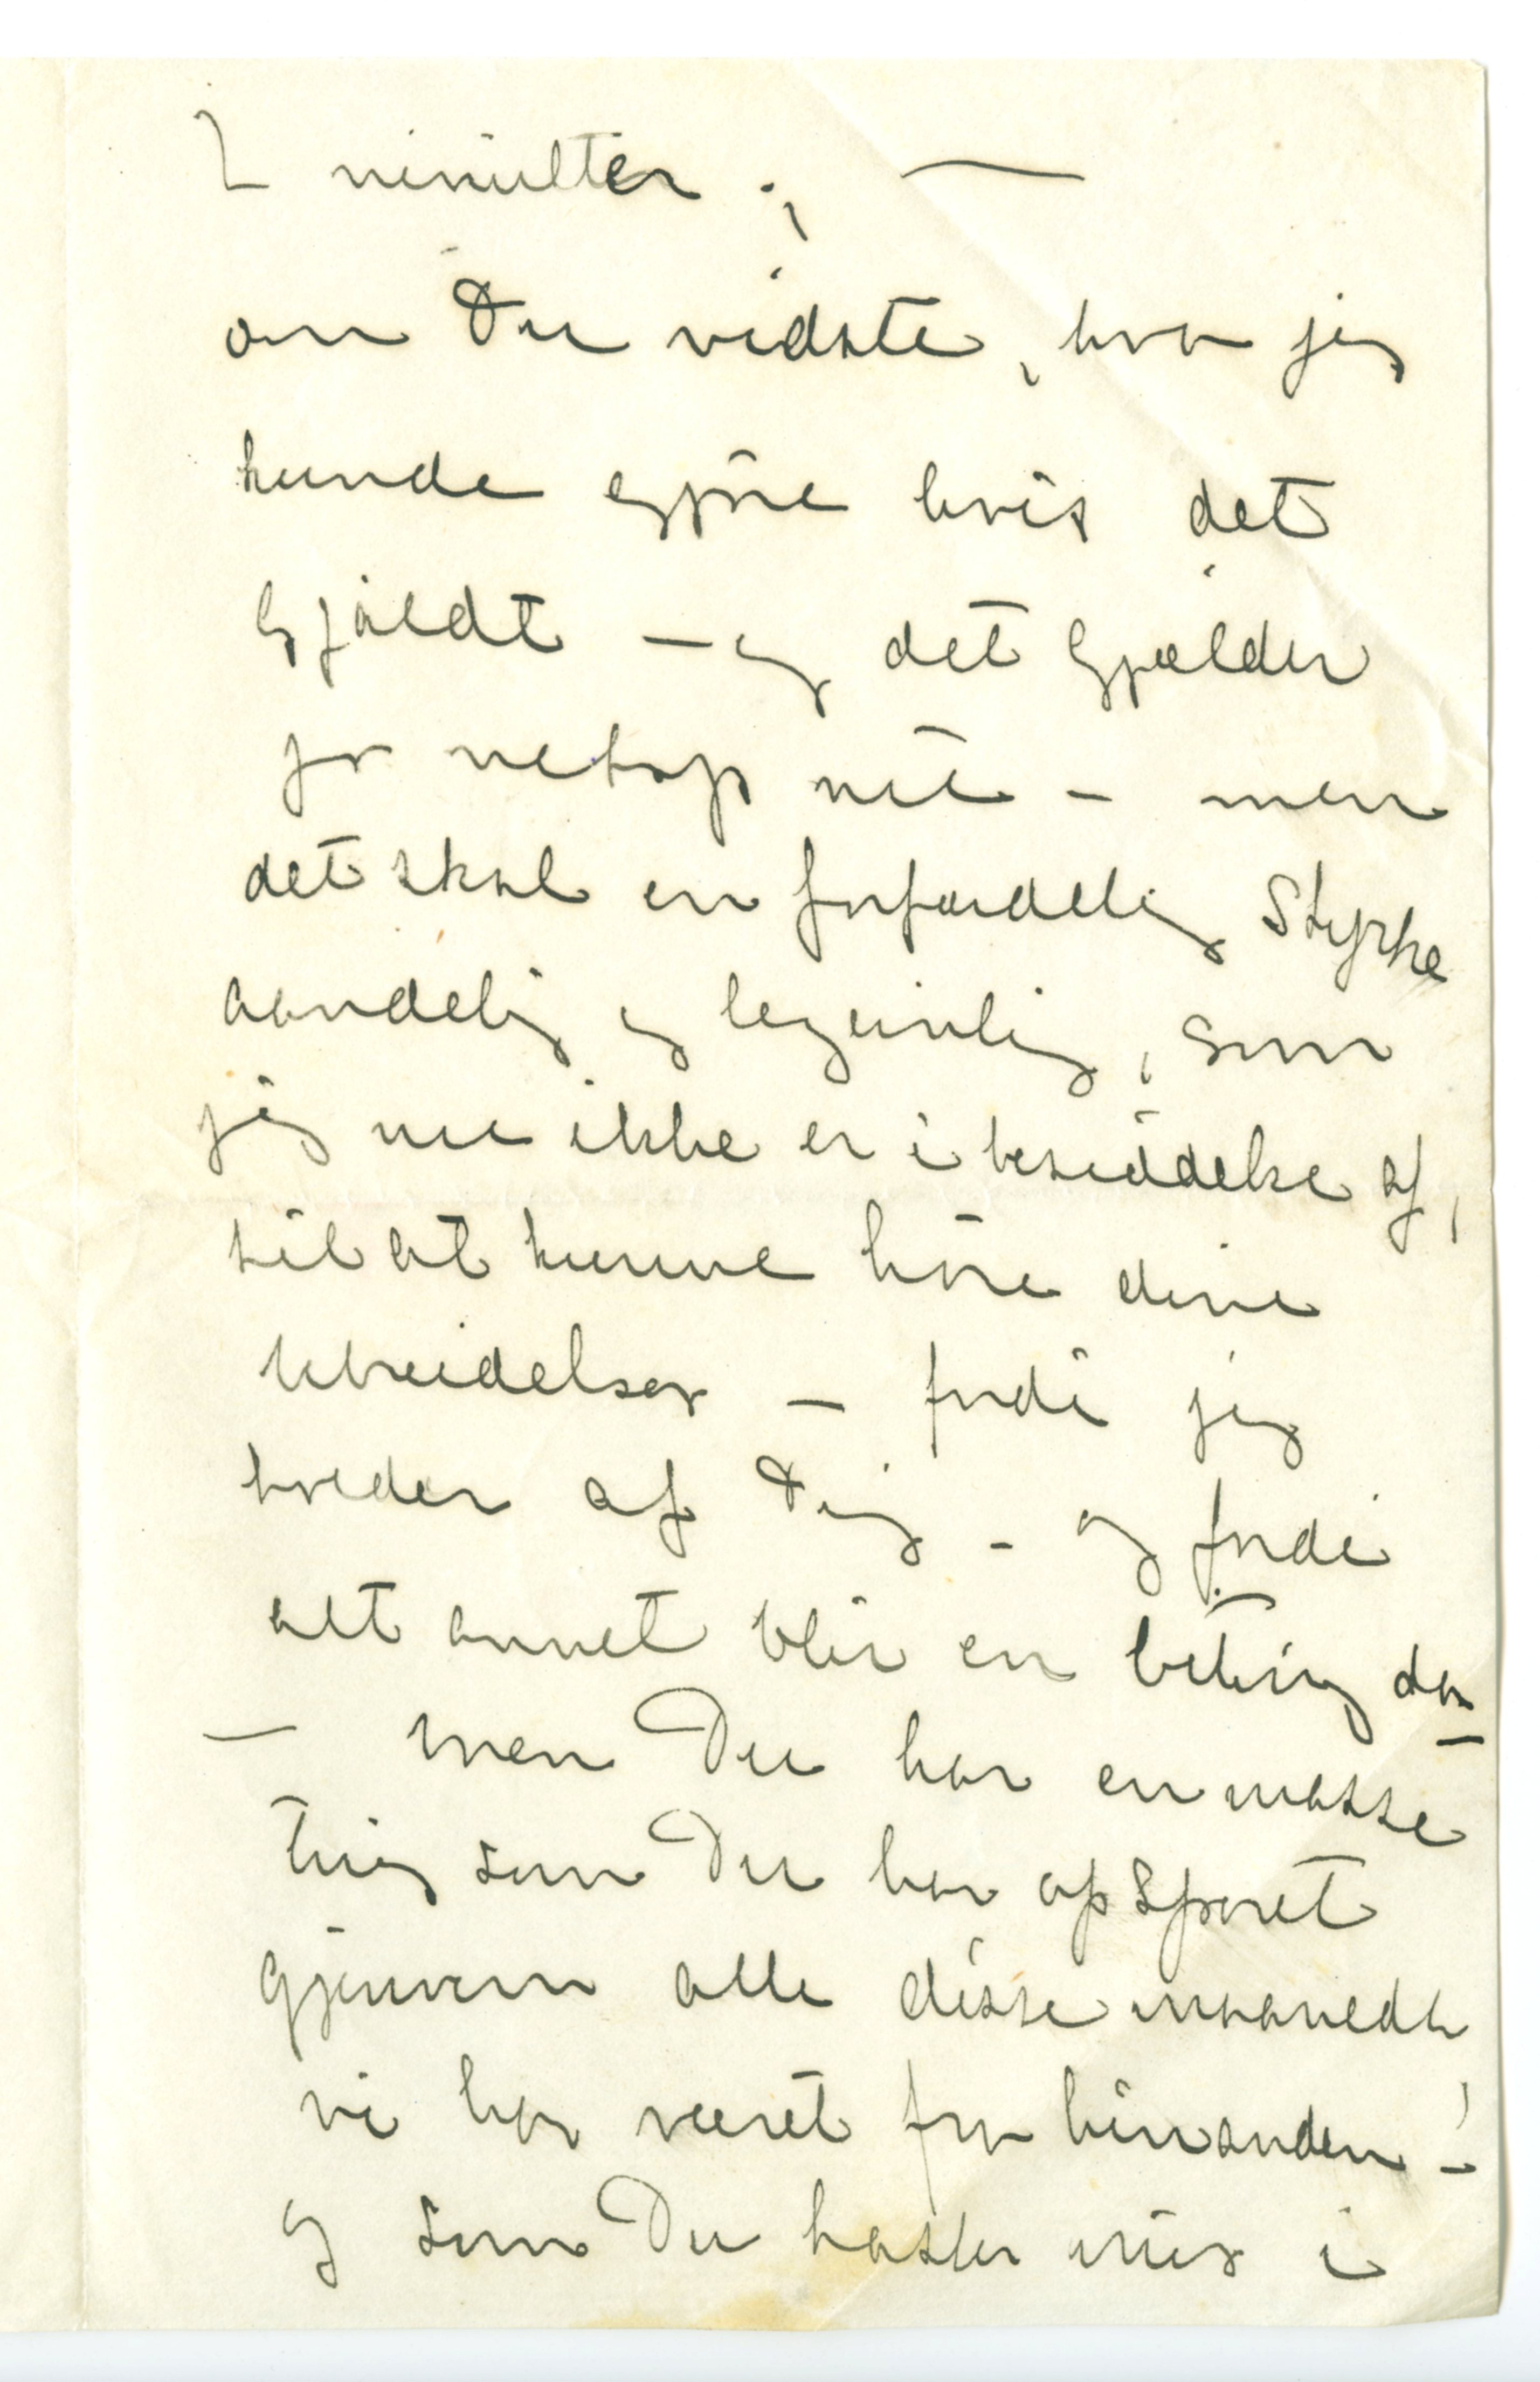 2 minutter ; —
om Du vidste, hva jeg
kunde gjøre hvis det
gjaldt — og det gjælder
jo netop nu — men
det skal en forfærdelig Styrke
aandelig og legemlig, som
jeg nu ikke er i besiddelse af,
til at kunne høre dine
bebreidelser — fordi jeg
holder af Dig — og fordi
alt annet blir en biting da
— men Du har en masse
ting som Du har opsparet
gjennem alle disse maaneder
vi har været fra hinanden —
og som Du kaster mig i